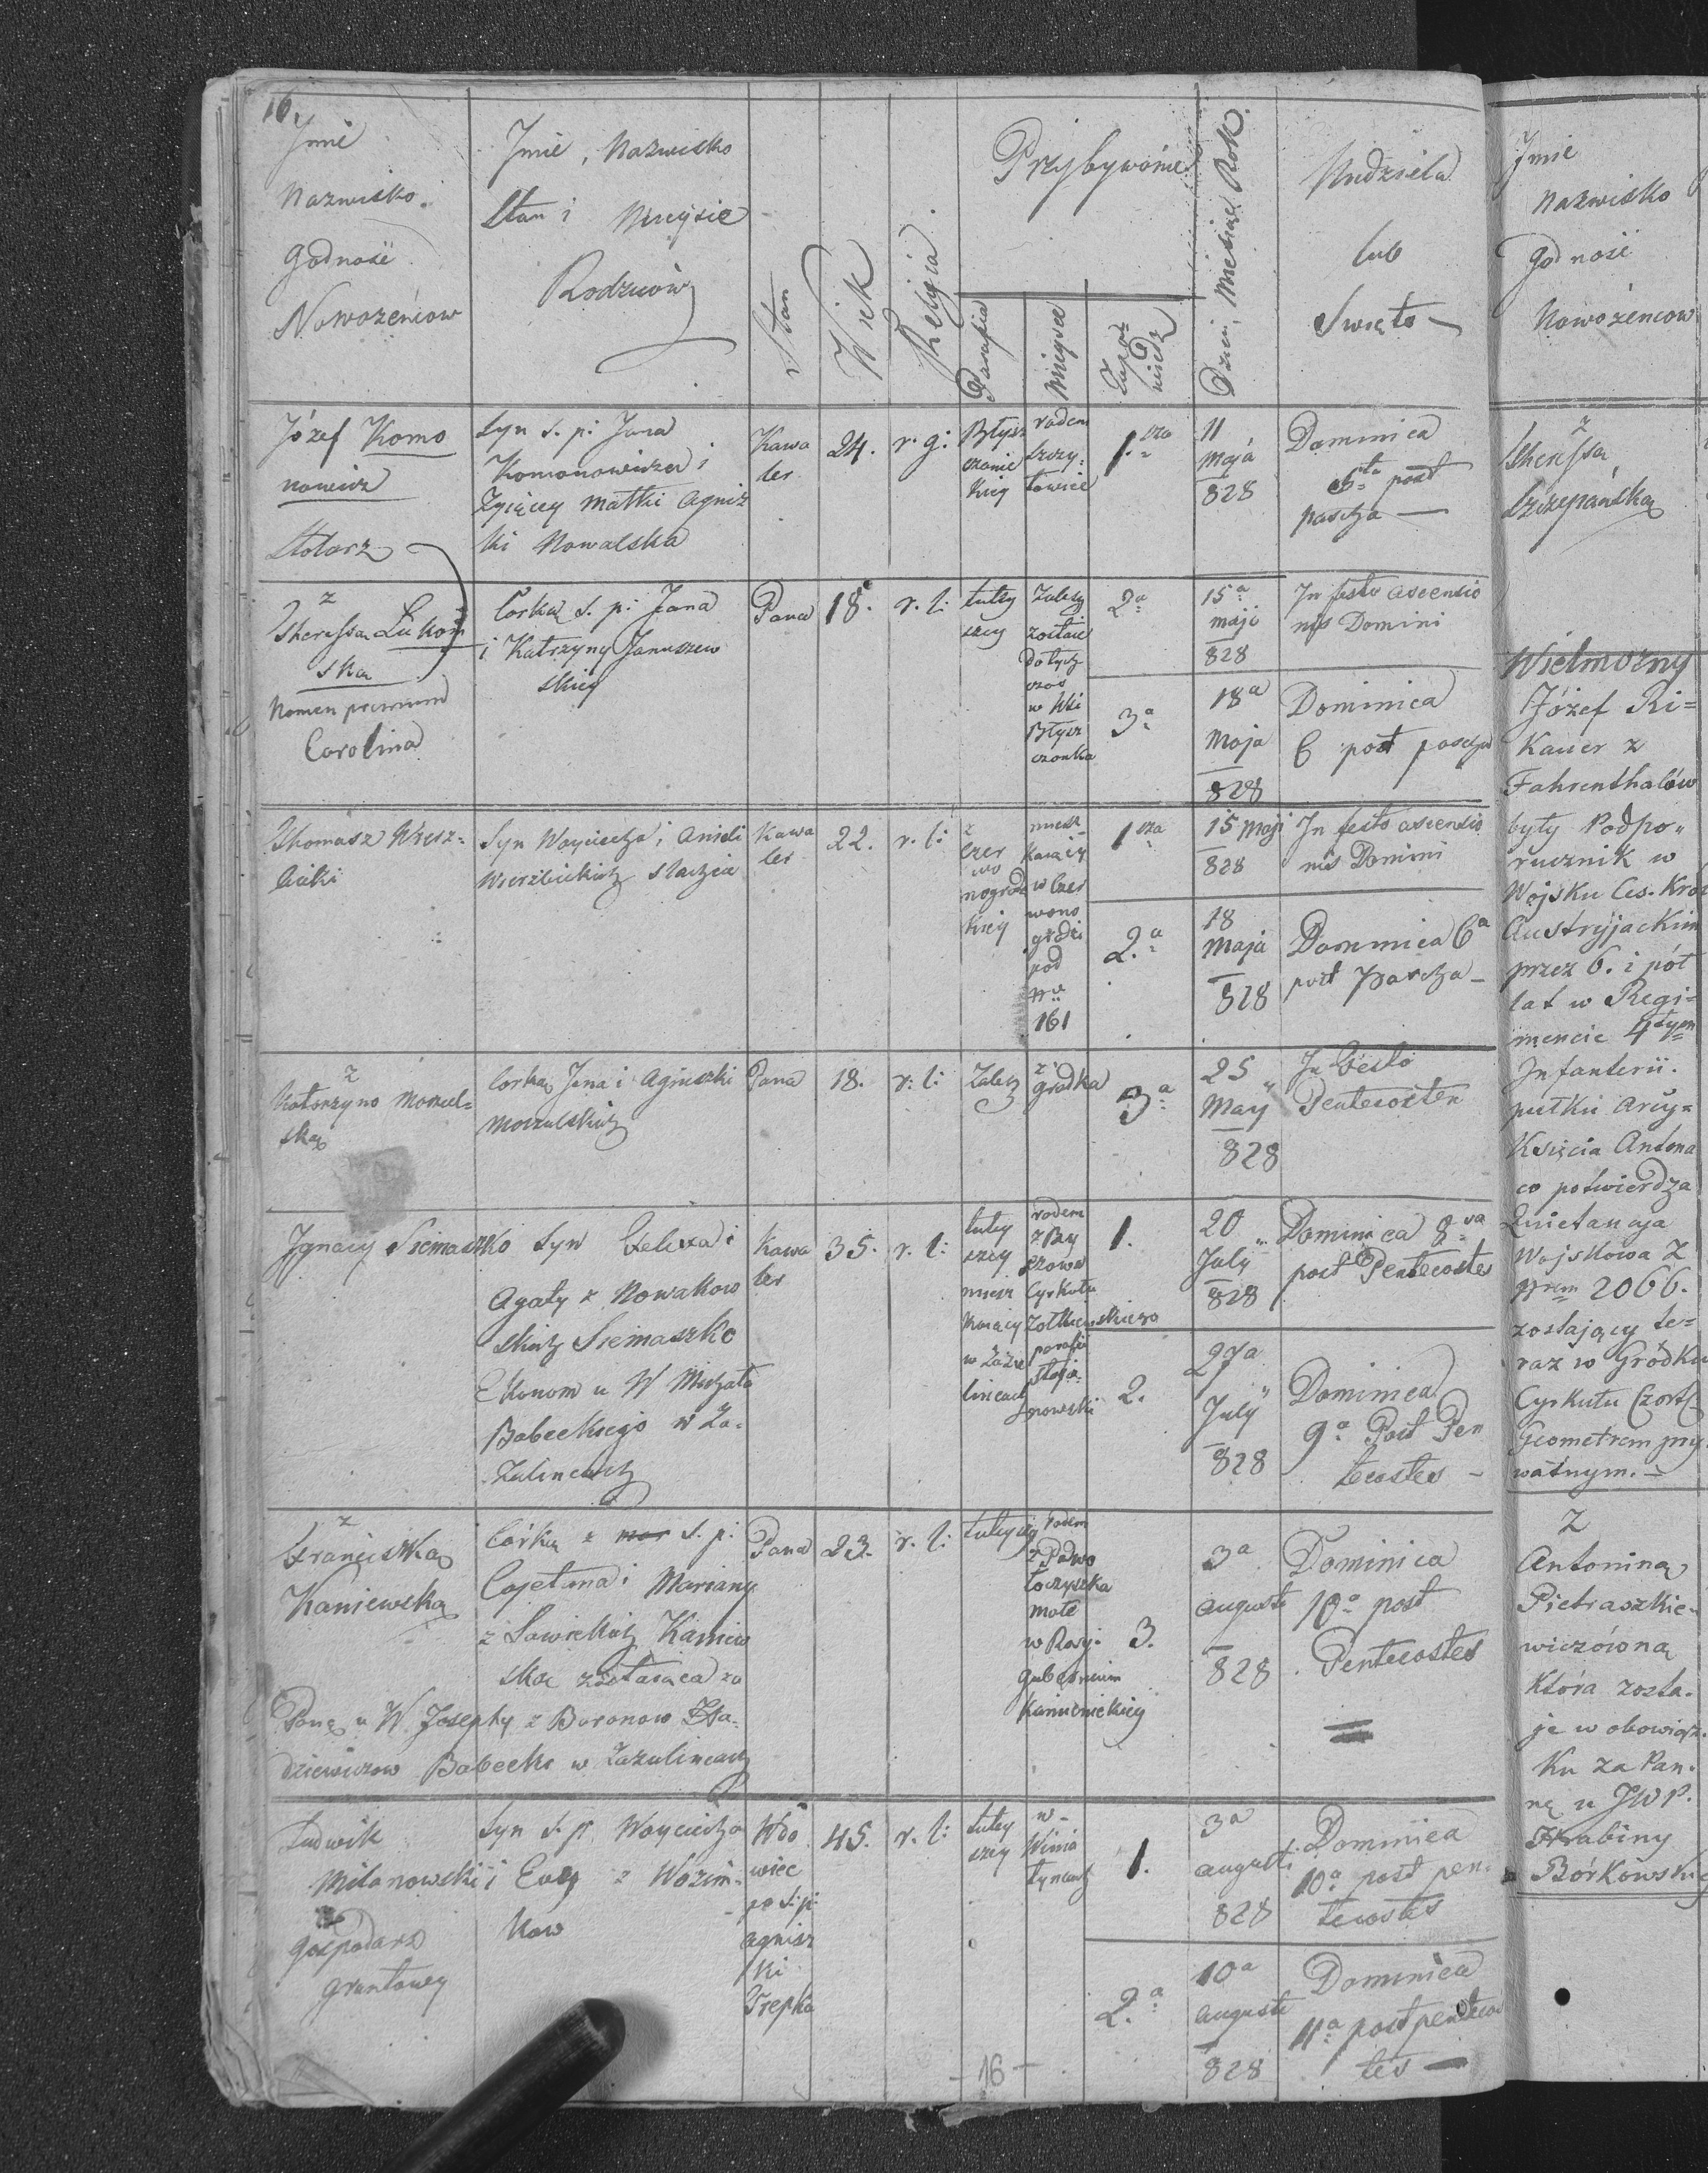 16.
Jmie
Nazwisko.
Godność
Nowożeńcow
Jmie, Nazwisko
Stan i Mieysie
Rodziców
Stan
Wiek
Religia
Przybywanie
Parafia
Mieysca
Zapo-
wiedz
Dzień, Miesiąc Rok.
Niedziela
lub
Święto —
Józef Komo
nowicz
Stolarz
Syn s. p: Jana
Komonowicza i
Zyiącey matki Agnisz
ki Nowalska
Kawa
ler
24.
r. g:
Błysz
czanie
kiey
rodem
Szczy-
towiec
1.sza
11
Maja
828
Dominica
5ta post
pascha —
z
Theressa Łukom
ska
Nomen premium
Carolina
Corka s. p: Jana
i Katrzyny Januszew
skiey
Pana
18.
r. l:
tutey
szey
Zalesz
zostaie
dotych
czas
w Wsi
Błysz
czonka
2a
15a
maji
828
Jn festo ascensio
nis Domini
3a
18a
Maja
828
Dominica
6 post pascha
Thomasz Wierz-
bicki
Syn Woyciecha i Anieli
Wierzbickich słachcia
Kawa
ler
22.
r. l:
z
Czer
wo
nogrod
kiey
miesz
kaiący
w Czer
wono
grodzi
pod
Nro
161
1sza
15 Maji
828
Jn festo ascensio
nis Domini
2.a
18
Maja
828
Dominica 6a
post Pascha —
z
Katarzyno Moczul-
ską
Corką Jana i Agnuszki
Moczulskich
Pana
18.
r: l:
Zalesz
z
grodka
3a
25
May
828
Jn Festo
Pentecosten
Jgnacy Siemaszko
Syn Felixa i
Agaty z Nowakow
skich Siemaszko
Ekonom u W Michała
Babeckiego w Za-
Zulincach
Kawa
ler
35.
r. l:
tutey
szey
miesz
kaiący
w Zazu
lincach
rodem
z By
szowa
Cyrkułu
Zołkiewskiego
parafii
Stoja-
nowski
1.
20
July
828
Dominica 8va
post Pentecostes
2.
27a
July
828
Dominica
9a Post Pen
tecostes —
z
Franciszką
Kaniewską
Córką z s. p:
Cajetana i Mariany
z Sawickich Kaniew
ska zostaiąca za
Panę u W. Josephy z Baronow Ha-
dziewiczow Babecki w Zazulincach
Pana
23.
r. l:
tuteyszy
rodem
z Podwo
łoczyszka
małe
w Rosyi
guberniim
Kamienickiey
3.
3a
augusti
828
Dominica
10a post
Pentecostes
Ludwik
Milanowski
gospodarz
gruntowy
Syn s. p: Woyciecha
i Evy z Wozim-
kow
Wdo
wiec
po s: p:
Agnisz
ki
Trepka
45.
r. l:
tutey
szey
w-
Winia
tyncach
1.
3a
augusti
828
Dominica
10a post pen-
tecostes
2.a
10a
augusti
828
Dominica
11a post pentecos
tes —
- 16 -
Jmie
Nazwisko
Godność
Nowożencow
z
Theressa
Szczepańską
Wielmożny
Józef Ri=
kauer z
Fahrenthalów
były Podpo-
rucznik w
Wojsku Ces. Król
Austryjackim
przez 6. i pół
lat w Regi=
mencie 4tym
Jnfanterii.
pułku Arcy=
Księcia Antona
co potwierdza
Quietancya
Wojskowa Z
Nrem 2066.
zostający te=
raz w Gródku
Cyrkułu Czort.
Geometrem pry
watnym. —
Z
Antoniną
Pietraszkie-
wiczówną
Która zosta-
je w obowiąz-
ku za Pan-
nę u JWP.
Hrabiny
Borkowskiej